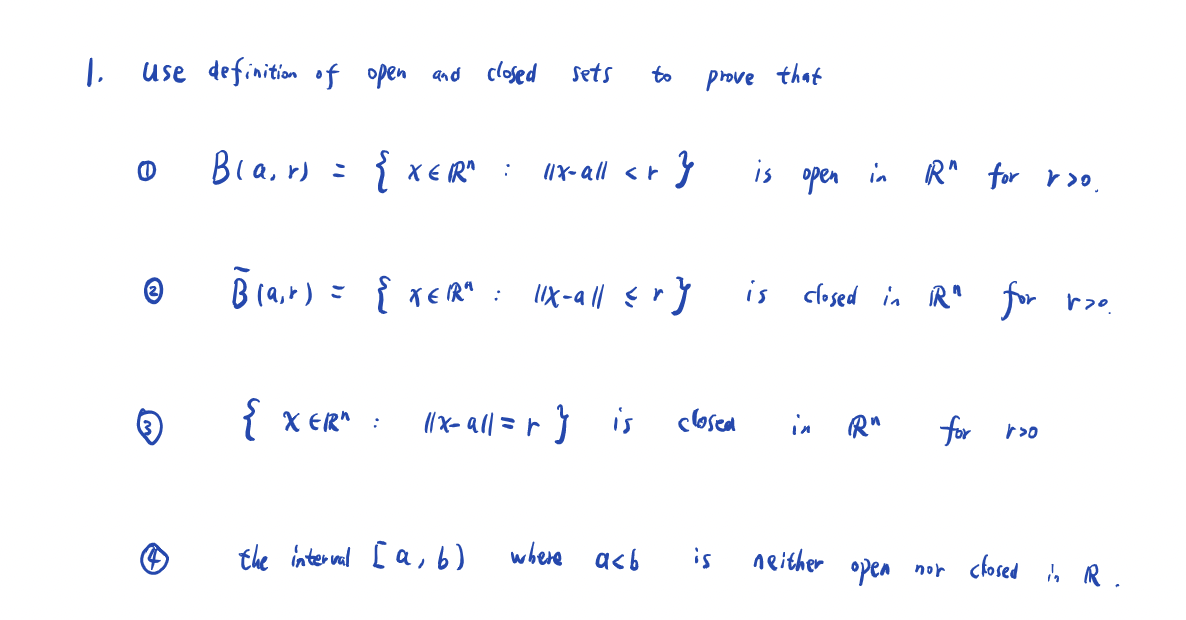 1. Use definition of open and closed sets to prove that
① B(a, r) = { x ∈ ℝⁿ : ||x-a|| < r } is open in ℝⁿ for r>0.
② B̄(a,r) = { x ∈ ℝⁿ : ||x-a|| ≤ r } is closed in ℝⁿ for r>0.
③ { x ∈ ℝⁿ : ||x-a|| = r } is closed in ℝⁿ for r>0
④ the interval [a, b) where a<b is neither open nor closed in ℝ.